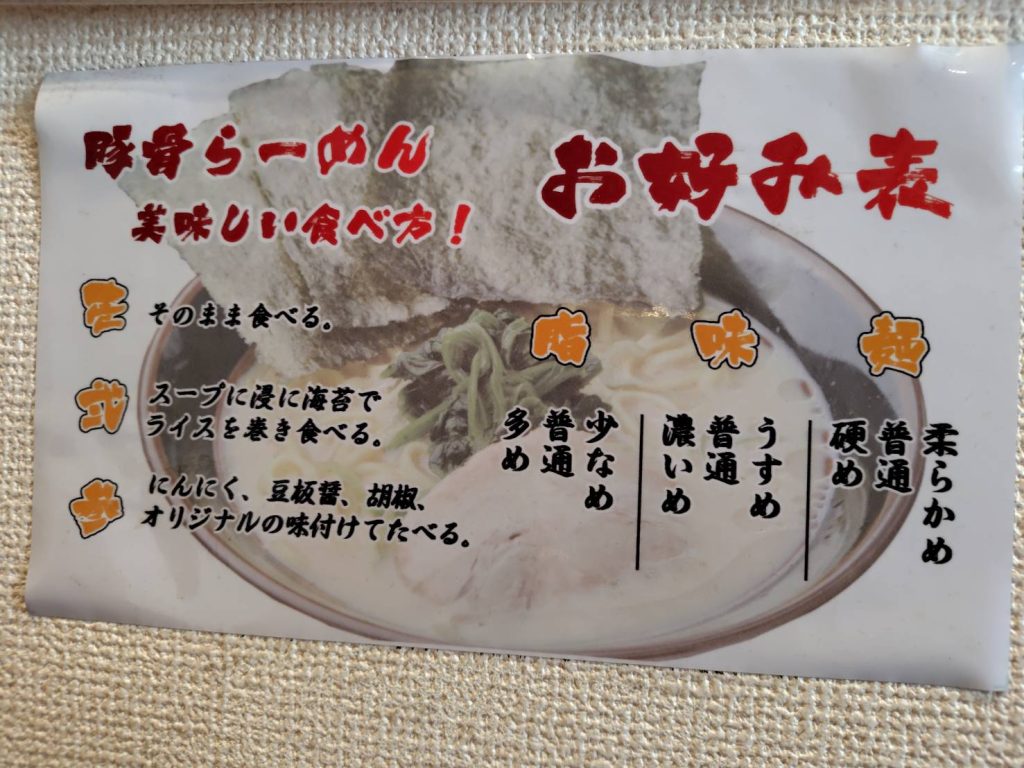 豚骨らーめん
美味しい食べ方！
壱
そのまま食べる。
弐
スープに浸に海苔で
ライスを巻き食べる。
参
にんにく、豆板醤、胡椒、
オリジナルの味付けてたべる。
お好み表
麺
柔らかめ
普通
硬め
味
うすめ
普通
濃いめ
脂
少なめ
普通
多め